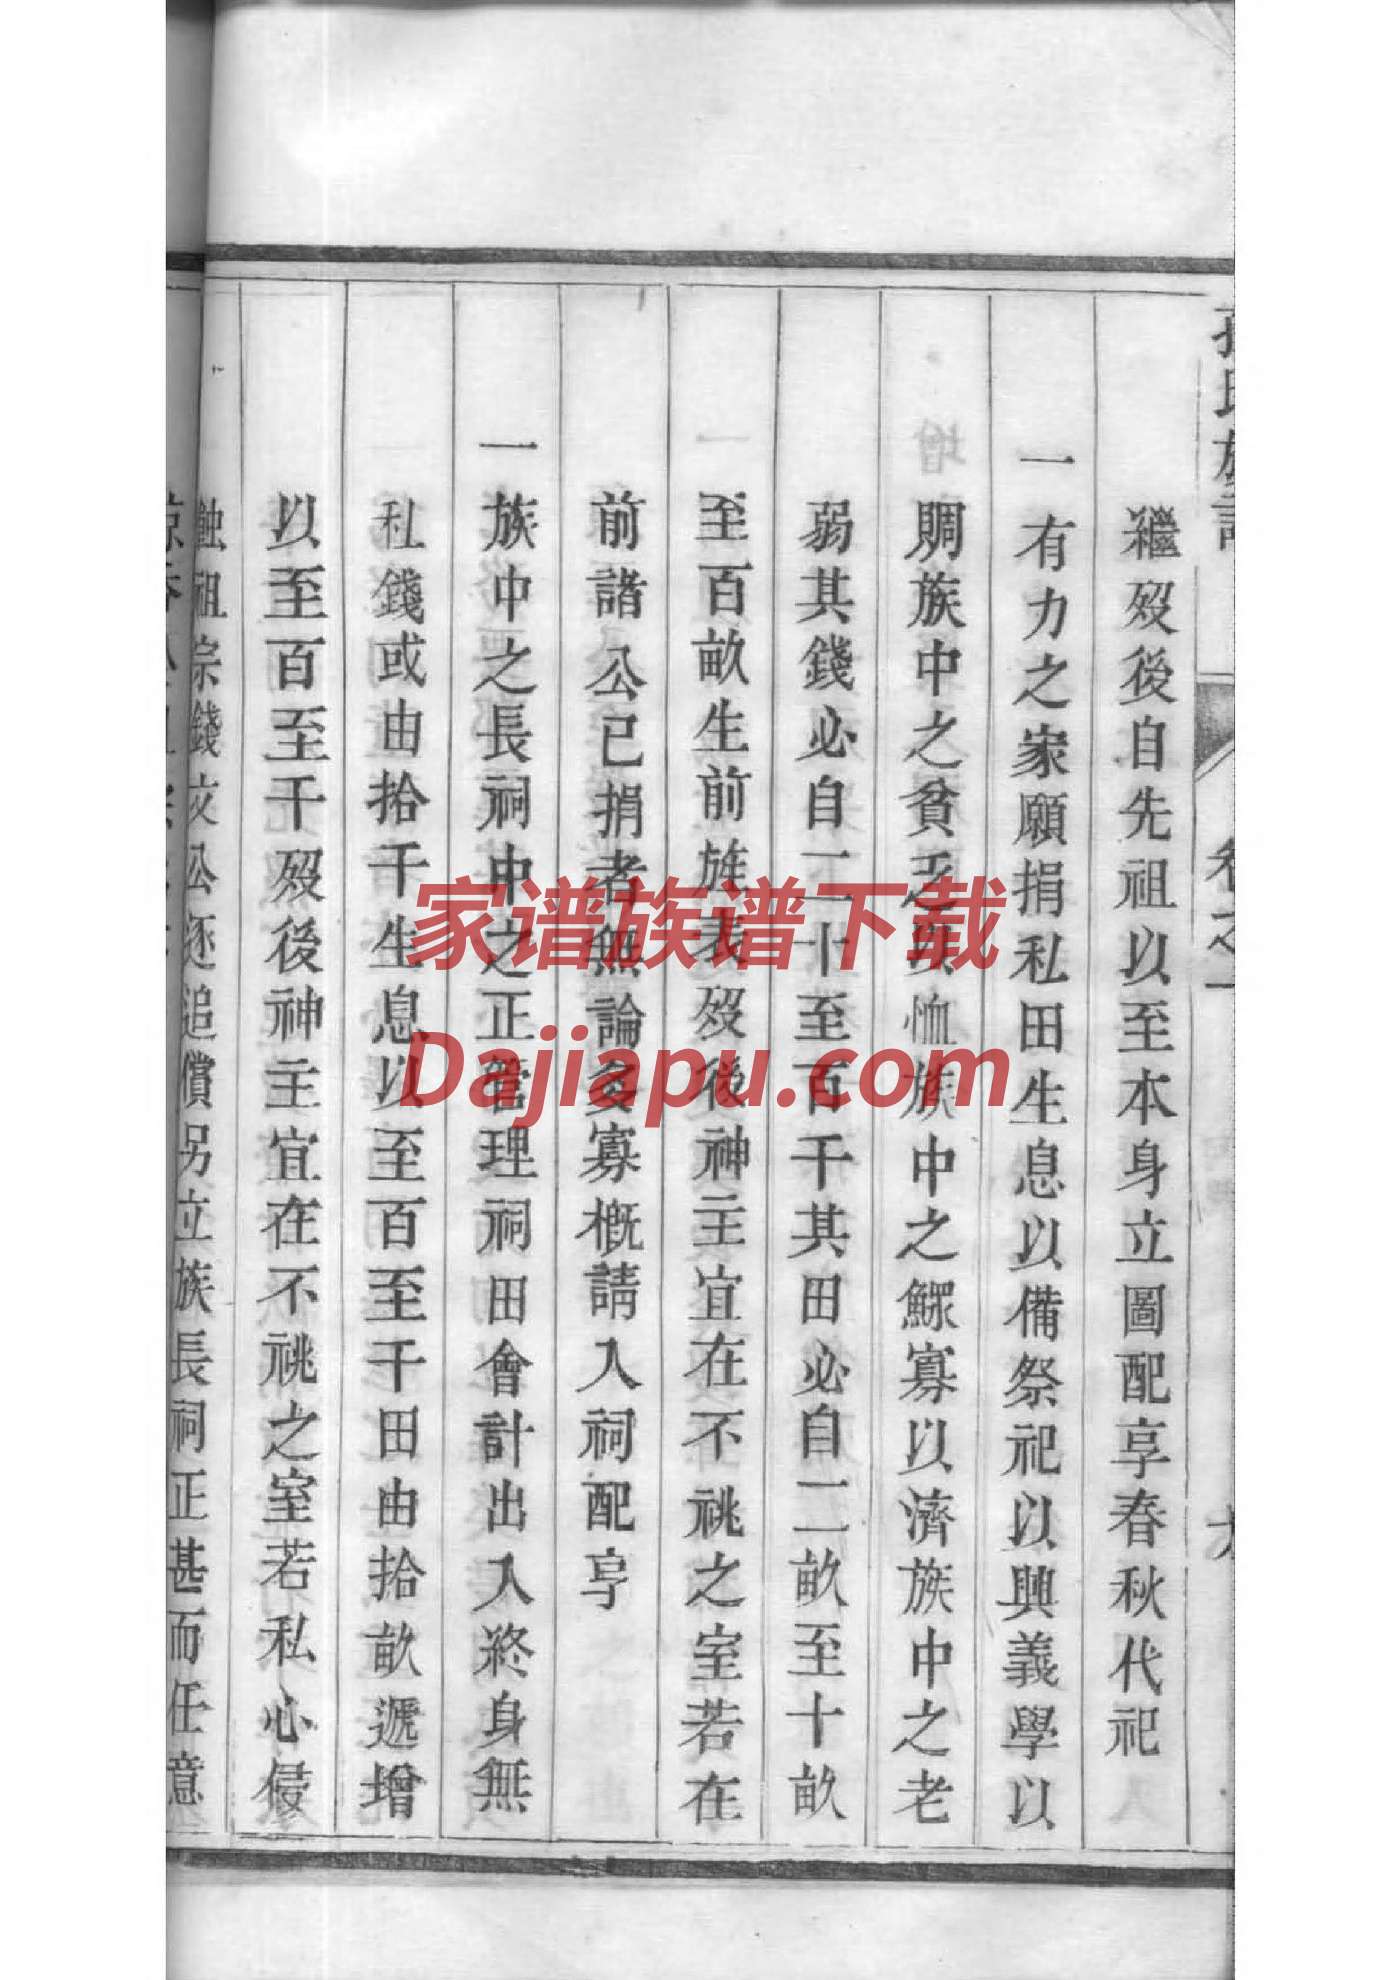 孫氏族譜
卷之一
繼歿後自先祖以至本身立圖配享春秋代祀
一有力之家願捐私田生息以備祭祀以興義學以
賙族中之貧乏以恤族中之鰥寡以濟族中之老
弱其錢必自一二十至百千其田必自一二畝至十畝
至百畝生前旌表歿後神主宜在不祧之室若在
前諸公已捐者無論多寡概請入祠配享
一族中之長祠中之正管理祠田會計出入終身無
私錢或由拾千生息以至百至千田由拾畝遞增
以至百至千歿後神主宜在不祧之室若私心侵
蝕祖宗錢文公逐追償另立族長祠正甚而任意
家谱族谱下载
Dajiapu.com